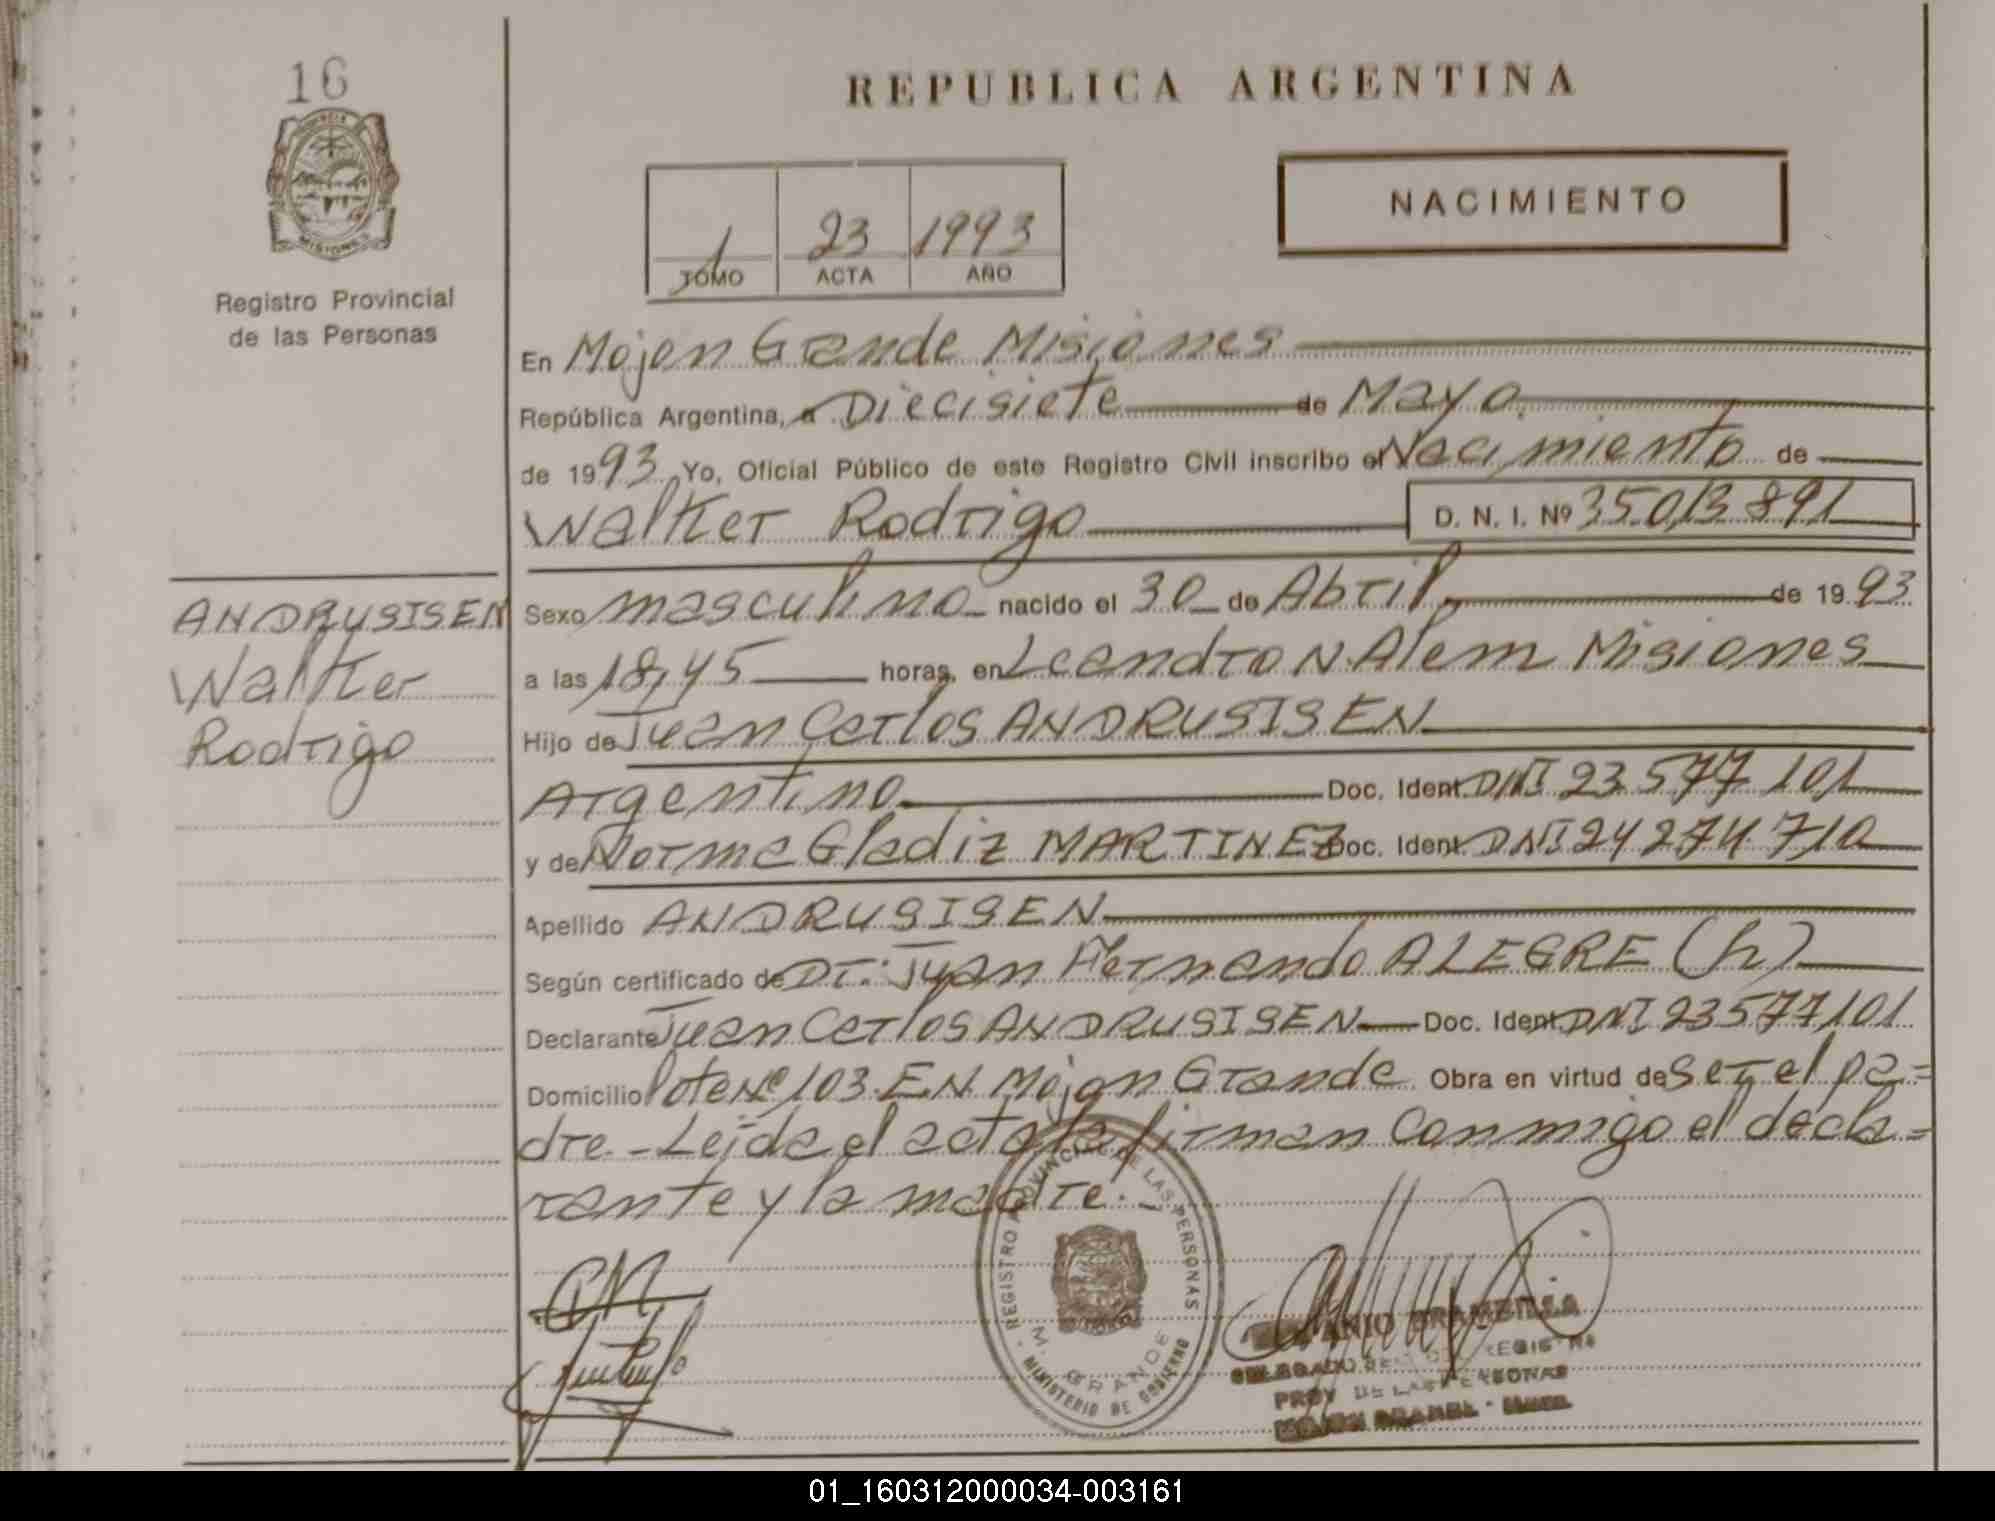 16
MISIONES
Registro Provincial
de las Personas
REPUBLICA ARGENTINA
NACIMIENTO
1 23 1993
TOMO ACTA AÑO
En Mojon Grande Misiones
República Argentina, a Diecisiete de Mayo
de 1993 Yo, Oficial Público de este Registro Civil inscribo el Nacimiento de
Walter Rodrigo D. N. I. Nº 35.013.891
ANDRUSISEN
Walter
Rodrigo
Sexo masculino nacido el 30 de Abril de 1993
a las 18,45 horas, en Leandro N. Alem Misiones
Hijo de Juan Carlos ANDRUSISEN
Argentino Doc. Ident. DNI 23.577.101
y de Norma Gladiz MARTINEZ Doc. Ident. DNI 24.274.710
Apellido ANDRUSISEN
Según certificado de Dr: Juan Hernando ALEGRE (h)
Declarante Juan Carlos ANDRUSISEN Doc. Ident. DNI 23577101
Domicilio lote Nº 103 EN Mojon Grande Obra en virtud de ser el pa=
dre.- Leida el acta la firman conmigo el decla=
rante y la madre.-
REGISTRO PROVINCIAL DE LAS PERSONAS
M. GRANDE
MINISTERIO DE GOBIERNO
BRAMBILLA
DELEGADO REGIS
PROV DE LAS PERSONAS
MOJON GRANDE
01_160312000034-003161